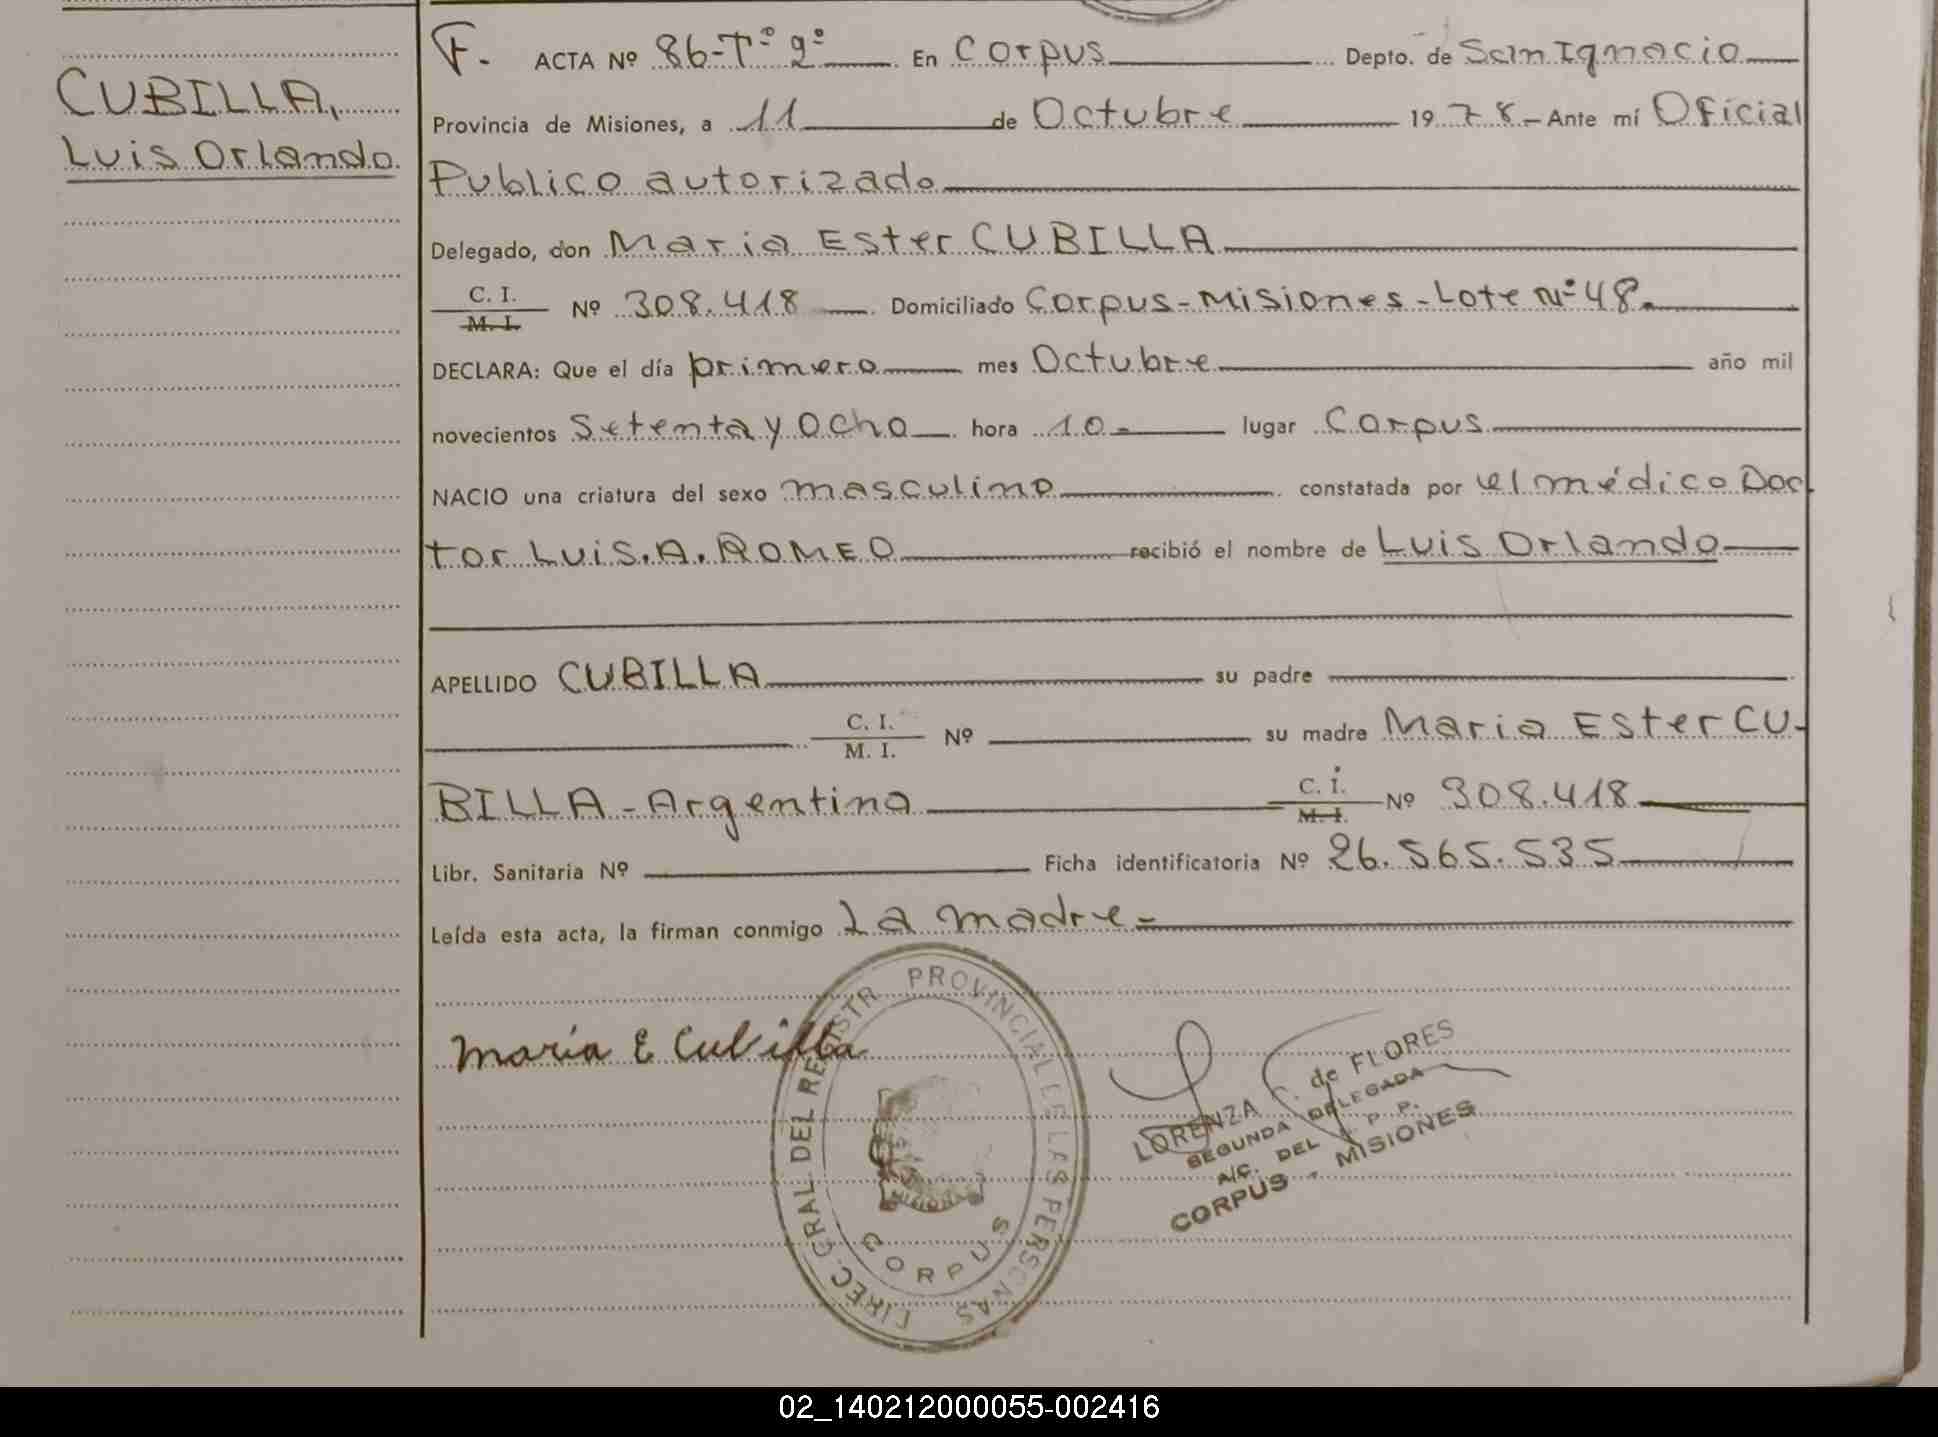 CUBILLA,
Luis Orlando
F. ACTA Nº 86-Tº 2º En Corpus Depto. de San Ignacio
Provincia de Misiones, a 11 de Octubre 1978.- Ante mí Oficial
Publico autorizado
Delegado, don Maria Ester CUBILLA
C. I.
M. I. Nº 308.418 Domiciliado Corpus-Misiones-Lote Nº 48.
DECLARA: Que el día primero mes Octubre año mil
novecientos Setenta y Ocho hora 10- lugar Corpus
NACIO una criatura del sexo masculino constatada por el médico Doc
tor Luis.A.ROMEO recibió el nombre de Luis Orlando
APELLIDO CUBILLA su padre
C. I.
M. I. Nº su madre Maria Ester CU-
BILLA-Argentina C. I.
M. I. Nº 308.418
Libr. Sanitaria Nº Ficha identificatoria Nº 26.565.535
Leída esta acta, la firman conmigo La madre-
María E Cubilla
PROVINCIAL DE LAS PERSONAS
DIREC. GRAL DEL REGISTR
CORPUS
LORENZA de FLORES
SEGUNDA DELEGADA
A/C. DEL P. P.
CORPUS - MISIONES
02_140212000055-002416